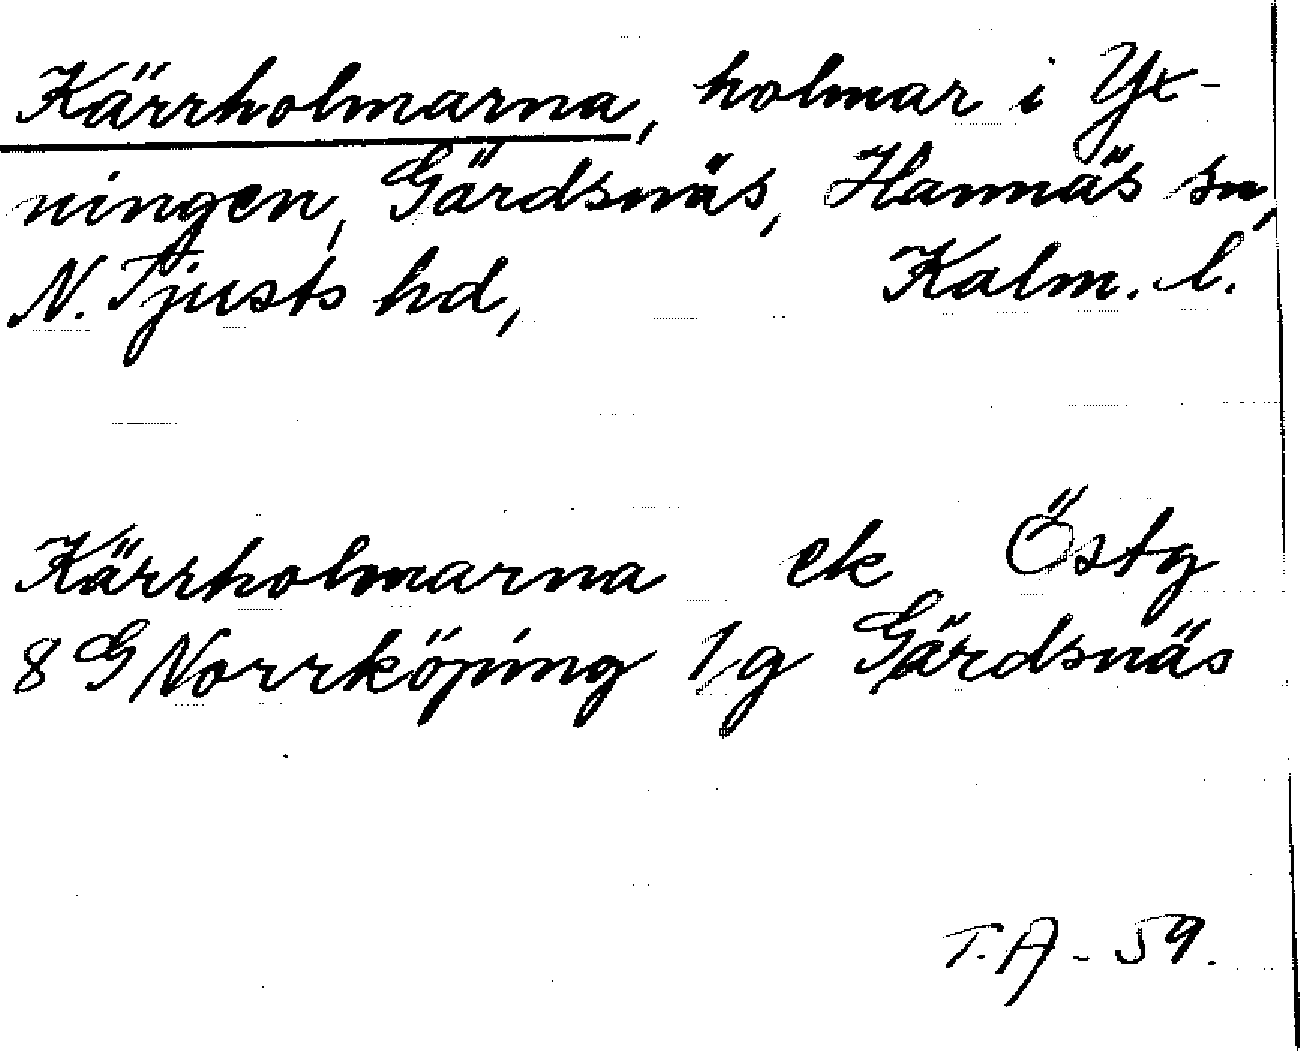 Kärrholmarna, holmar i Yx-
ningen, Gärdsnäs, Hannäs sn,
N. Tjusts hd, Kalm. l.
Kärrholmarna ek Östg
8 G Norrköping 1g Gärdsnäs
T.A - 59.